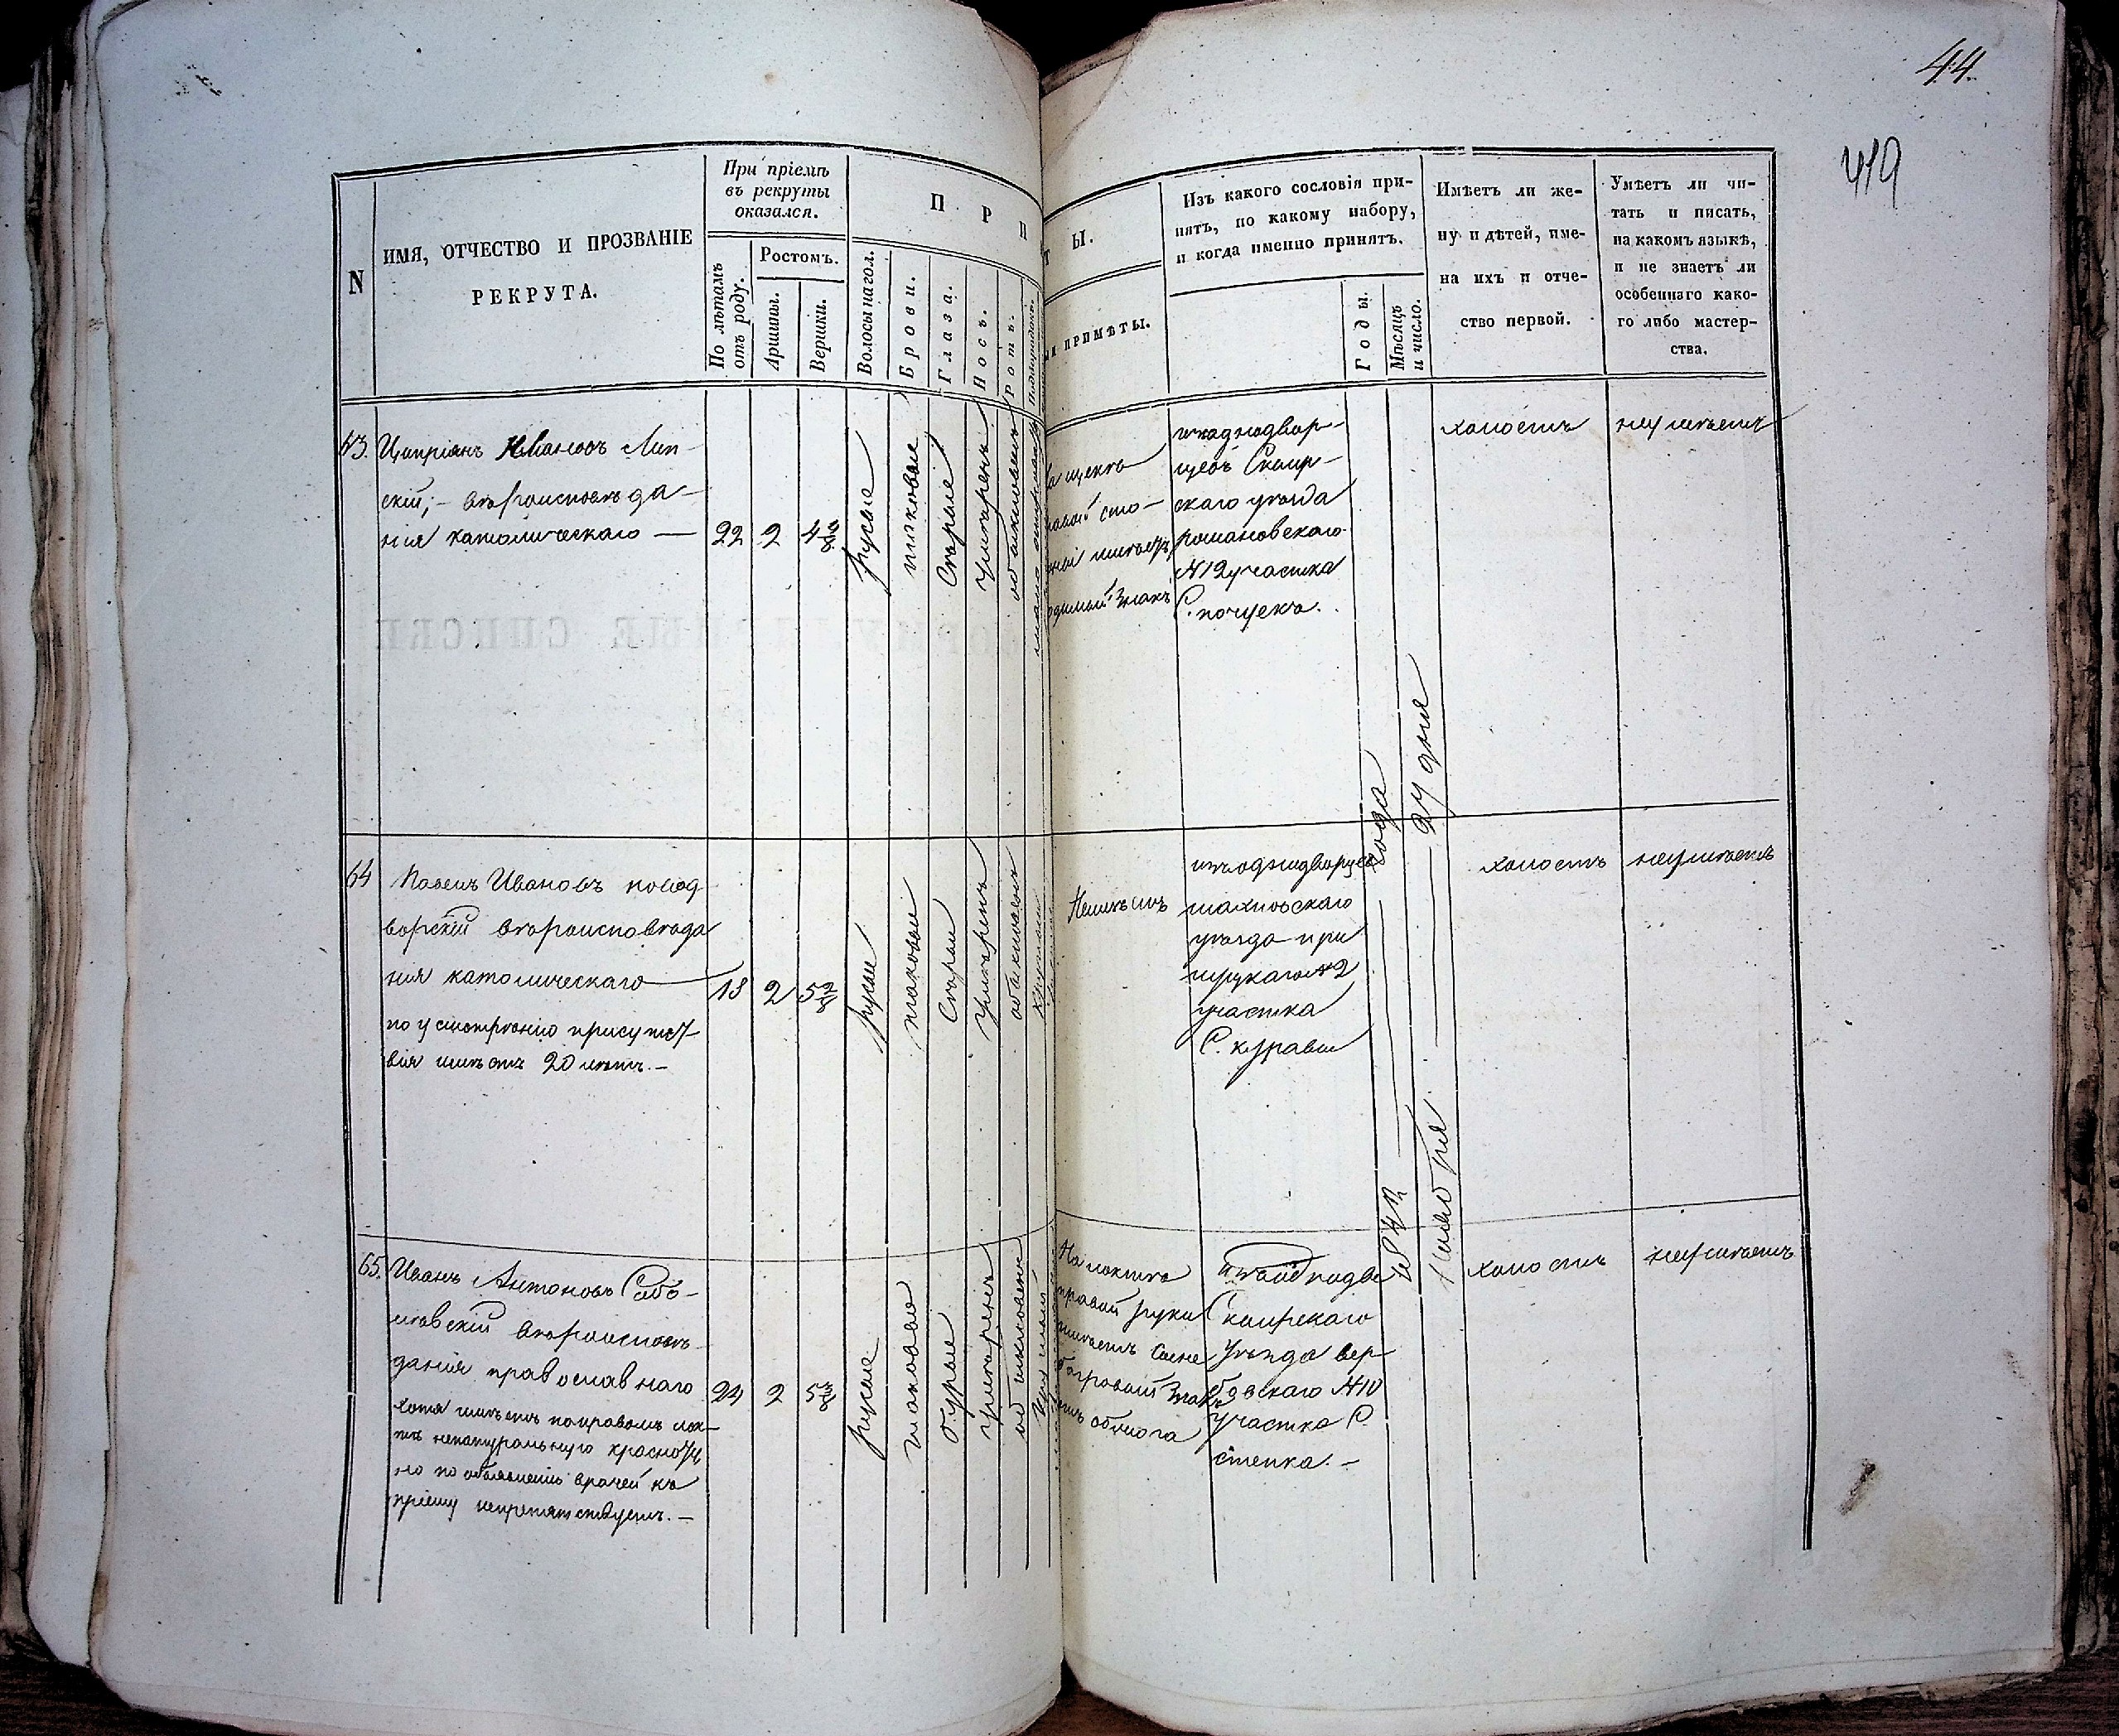 44.
419
N
ИМЯ, ОТЧЕСТВО И ПРОЗВАНІЕ
РЕКРУТА.
При пріемѣ
въ рекруты
оказался.
По лѣтамъ
отъ роду.
Ростомъ.
Аршины.
Вершки.
П Р И
Волосы на гол.
Брови.
Глаза.
Носъ.
Ротъ.
Подбородокъ.
Т Ы.
ПРИМѢТЫ.
Изъ какого сословія при-
нятъ, по какому набору,
и когда именно принятъ.
Годы.
Мѣсяцъ
и число.
Имѣетъ ли же-
ну и дѣтей, име-
на ихъ и отче-
ство первой.
Умѣетъ ли чи-
тать и писать,
на какомъ языкѣ,
и не знаетъ ли
особеннаго како-
го либо мастер-
ства.
63.
Ципріянъ Ивановъ Лип-
скій; – вѣроисповѣда-
нія католическаго —
22
2
4
русые
темновые
Сѣрые
Умѣренъ
обыкновенъ
щекѣ
имѣетъ
родимый знакъ
изъ однодвор-
цевъ Сквир-
скаго уѣзда
романовскаго
N12 участка
С. почуекъ.
холостъ
неумѣетъ
64
Павелъ Ивановъ
вѣроисповѣда
нія католическаго
по усмотрѣнію присутст-
вія имѣетъ 20 лѣтъ. –
18
2
5 2/8
русые
Сѣрые
умѣренъ
обыкновенъ
Неимѣетъ
изъ однодворцевъ
махновскаго
уѣзда при
N2
участка
С. журавли
холостъ
неумѣетъ
65.
Иванъ Антоновъ
вѣроисповѣ-
данія православнаго
хотя имѣетъ на правомъ лок-
тѣ ненатуральную красноту
но по объявленію врачей къ
пріему непрепятствуетъ. –
24
2
5
русые
бурые
умѣренъ
обыкновенъ
На локтѣ
правой руки
имѣетъ сине
багровый знакъ
отъ обжога
изъ однодв
Сквирскаго
Уѣзда вер-
бовскаго N10
участка С.
степка. –
холостъ
неумѣетъ
года
Ноября
24 дня